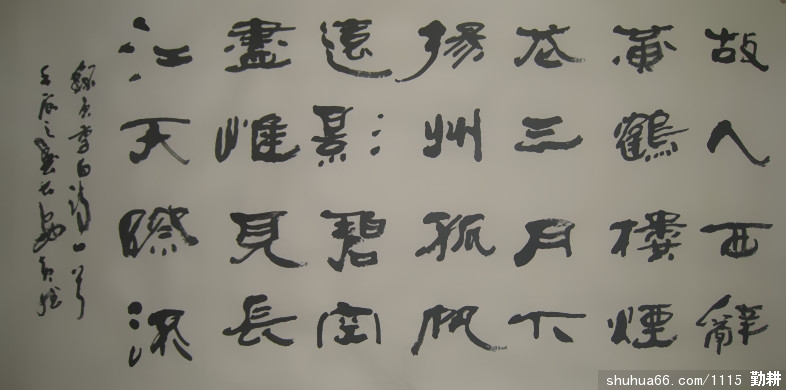 故人西辭
黃鶴樓煙
花三月下
揚州孤帆
遠影碧空
盡唯見長
江天際流
李白詩一首
shuhua66.com/1115 勤耕